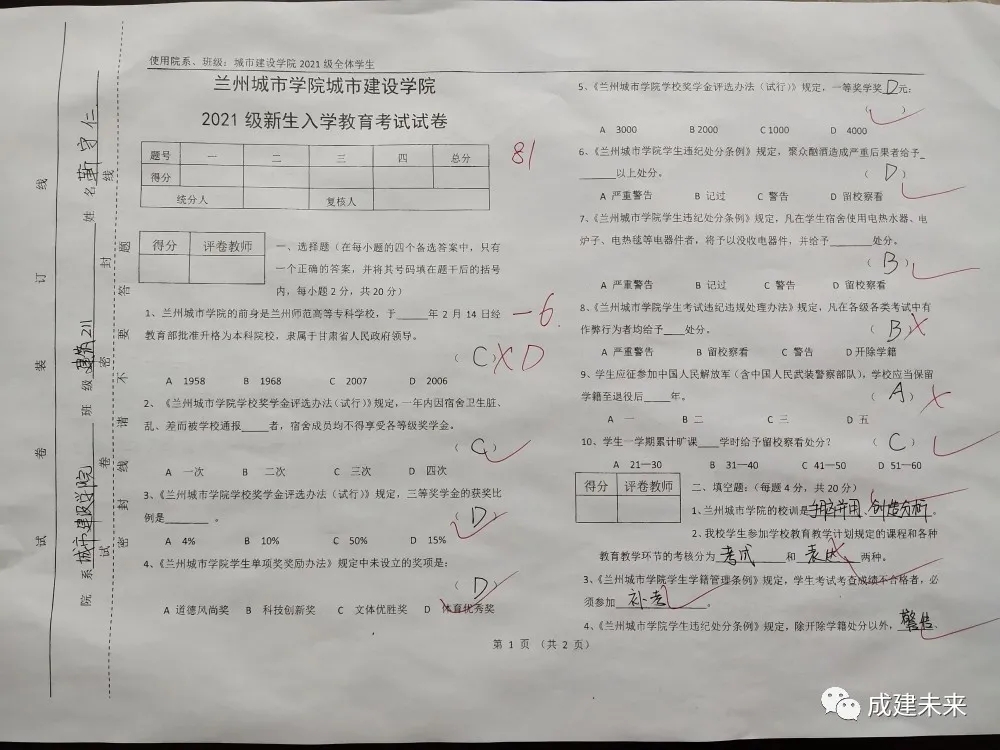 使用院系、班级：城市建设学院 2021 级全体学生
兰州城市学院城市建设学院
2021 级新生入学教育考试试卷
题号 一 二 三 四 总分
得分
统分人 复核人
81
得分 评卷教师
一、选择题（在每小题的四个备选答案中，只有
一个正确的答案，并将其号码填在题干后的括号
内，每小题 2 分，共 20 分）
-6
1、兰州城市学院的前身是兰州师范高等专科学校，于______年 2 月 14 日经
教育部批准升格为本科院校，隶属于甘肃省人民政府领导。
（ C ） D
A 1958 B 1968 C 2007 D 2006
2、《兰州城市学院学校奖学金评选办法（试行）》规定，一年内因宿舍卫生脏、
乱、差而被学校通报_____者，宿舍成员均不得享受各等级奖学金。
（ C ）
A 一次 B 二次 C 三次 D 四次
3、《兰州城市学院学校奖学金评选办法（试行）》规定，三等奖学金的获奖比
例是________ 。
（ D ）
A 4% B 10% C 50% D 15%
4、《兰州城市学院学生单项奖奖励办法》规定中未设立的奖项是：
（ D ）
A 道德风尚奖 B 科技创新奖 C 文体优胜奖 D 体育优秀奖
5、《兰州城市学院学校奖学金评选办法（试行）》规定，一等奖学奖 D 元：
（ ）
A 3000 B 2000 C 1000 D 4000
6、《兰州城市学院学生违纪处分条例》规定，聚众酗酒造成严重后果者给予_
_______以上处分。 （ D ）
A 严重警告 B 记过 C 警告 D 留校察看
7、《兰州城市学院学生违纪处分条例》规定，凡在学生宿舍使用电热水器、电
炉子、电热毯等电器件者，将予以没收电器件，并给予________处分。
（ B ）
A 严重警告 B 记过 C 警告 D 留校察看
8、《兰州城市学院学生考试违纪违规处理办法》规定，凡在各级各类考试中有
作弊行为者均给予____处分。 （ B ）
A 严重警告 B 留校察看 C 警告 D 开除学籍
9、学生应征参加中国人民解放军（含中国人民武装警察部队），学校应当保留
学籍至退役后_____年。 （ A ）
A 一 B 二 C 三 D 五
10、学生一学期累计旷课____学时给予留校察看处分？ （ C ）
A 21—30 B 31—40 C 41—50 D 51—60
得分 评卷教师
二、填空题：（每题 4 分，共 20 分）
1、兰州城市学院的校训是
2、我校学生参加学校教育教学计划规定的课程和各种
教育教学环节的考核分为 考试 和 两种。
3、《兰州城市学院学生学籍管理条例》规定，学生考试考查成绩不合格者，必
须参加 补考 。
4、《兰州城市学院学生违纪处分条例》规定，除开除学籍处分以外， 警告、
第 1 页 （共 2 页）
院 系 城市建设学院 班 级 建筑211 姓 名 靳守仁
试 卷 装 订 线
密 封 线 请 不 要 答 题
试 卷 密 封 线
成建未来